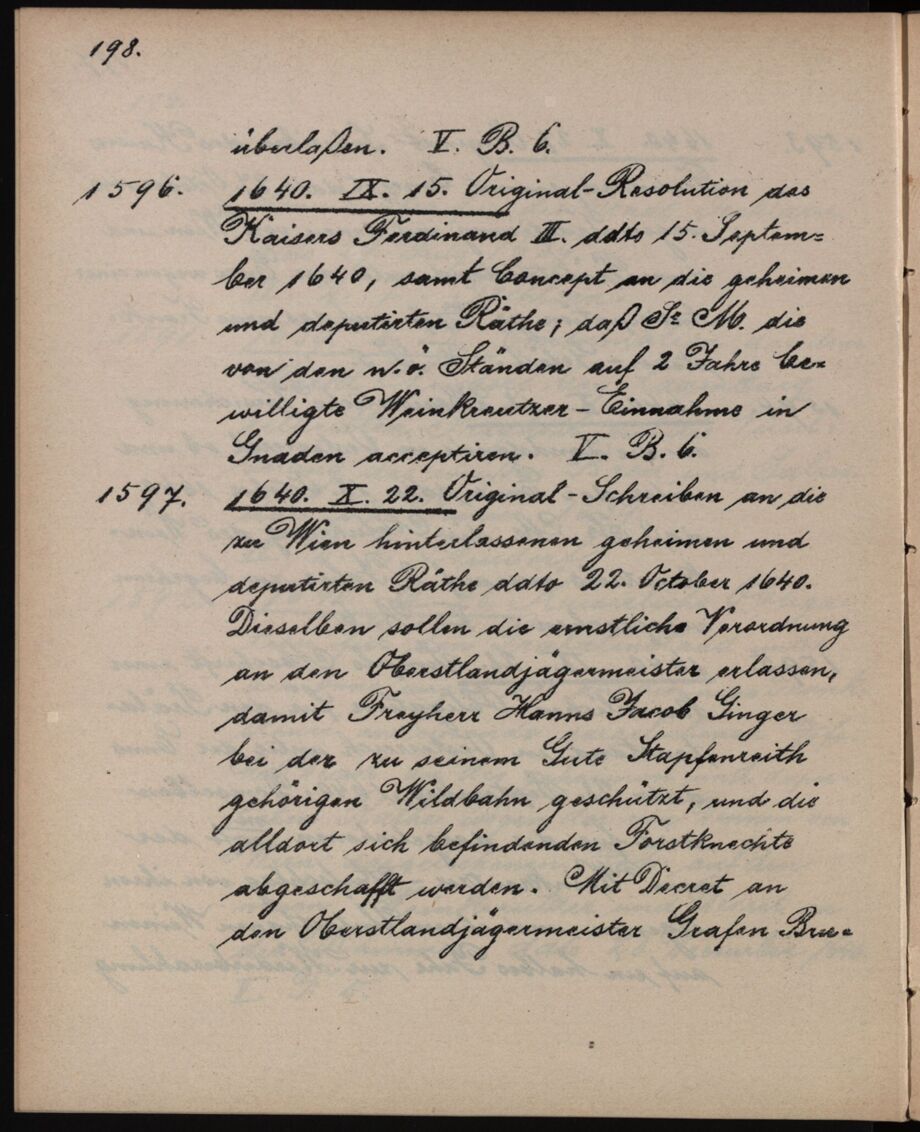 198.
überlaßen. V. B. 6.
1596. 1640. IX. 15. Original-Resolution des
Kaisers Ferdinand III. ddto 15. Septem=
ber 1640, samt Concept an die geheimen
und deputirten Räthe; daß Se M. die
von den n.ö. Ständen auf 2 Jahre be=
willigte Weinkreutzer-Einnahme in
Gnaden acceptiren. V. B. 6.
1597. 1640. X. 22. Original-Schreiben an die
zu Wien hinterlassenen geheimen und
deputirten Räthe ddto 22. October 1640.
Dieselben sollen die ernstliche Verordnung
an den Oberstlandjägermeister erlassen,
damit Freyherr Hanns Jacob Ginger
bei der zu seinem Gute Stapfenreith
gehörigen Wildbahn geschützt, und die
alldort sich befindenden Forstknechte
abgeschafft werden. Mit Decret an
den Oberstlandjägermeister Grafen Bru=